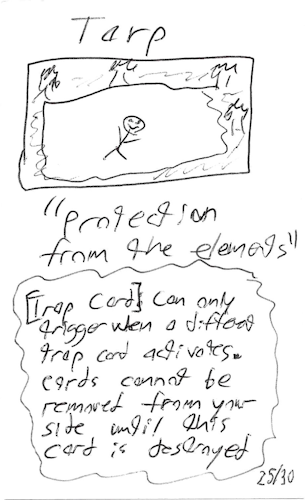 Tarp
"protection
from the elemets"
[Trap Card] Can only
trigger when a diffent
trap card activates.
cards cannot be
removed from your
side until this
card is destroyed
25/30